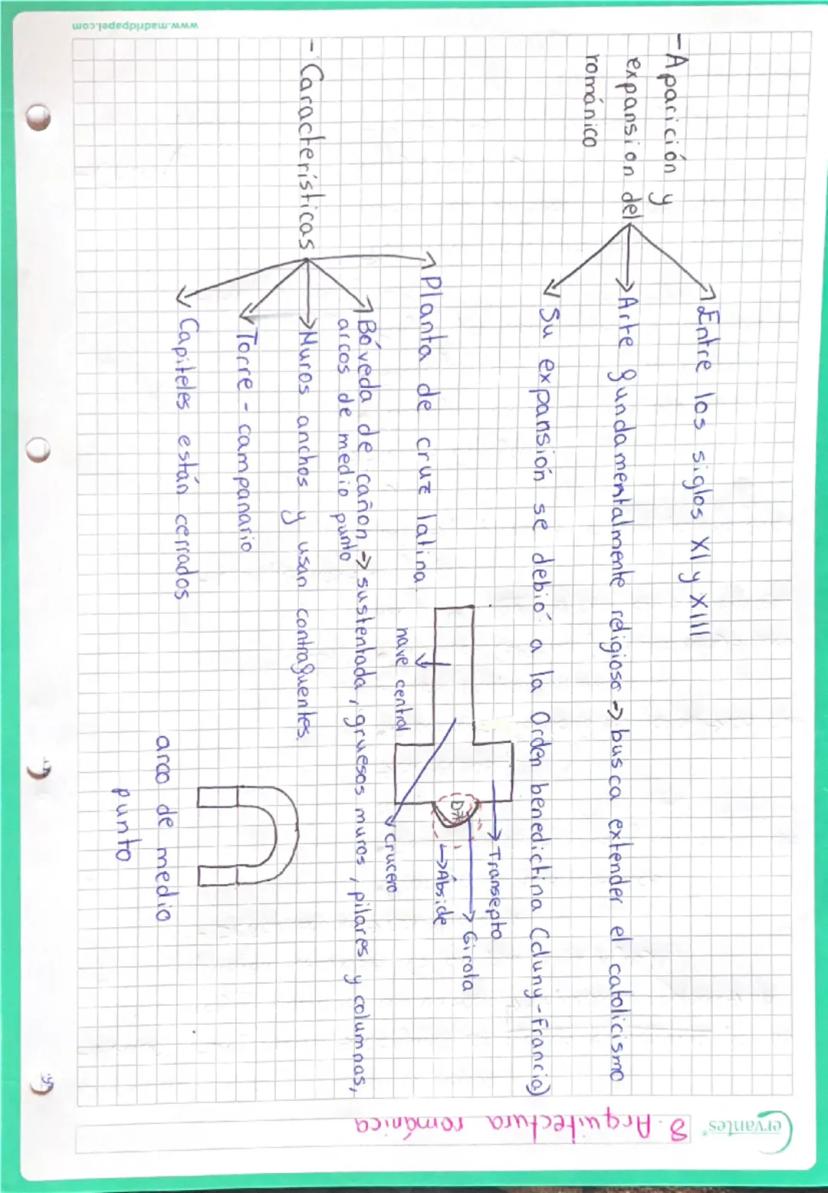 Cervantes®
8. Arquitectura románica
- Aparición y
expansion del
románico
Entre los siglos XI y XIII
Arte fundamentalmente religioso → busca extender el catolicismo
Su expansión se debió a la Orden benedictina (cluny-Francia)
- Características
Planta de cruz latina
nave central
Transepto
Girola
Ábside
crucero
Bóveda de cañon → sustentada, gruesos muros, pilares y columnas,
arcos de medio punto
Muros anchos y usan contrafuentes.
Torre - campanario
Capiteles están cerrados
arco de medio
punto
www.madridpapel.com